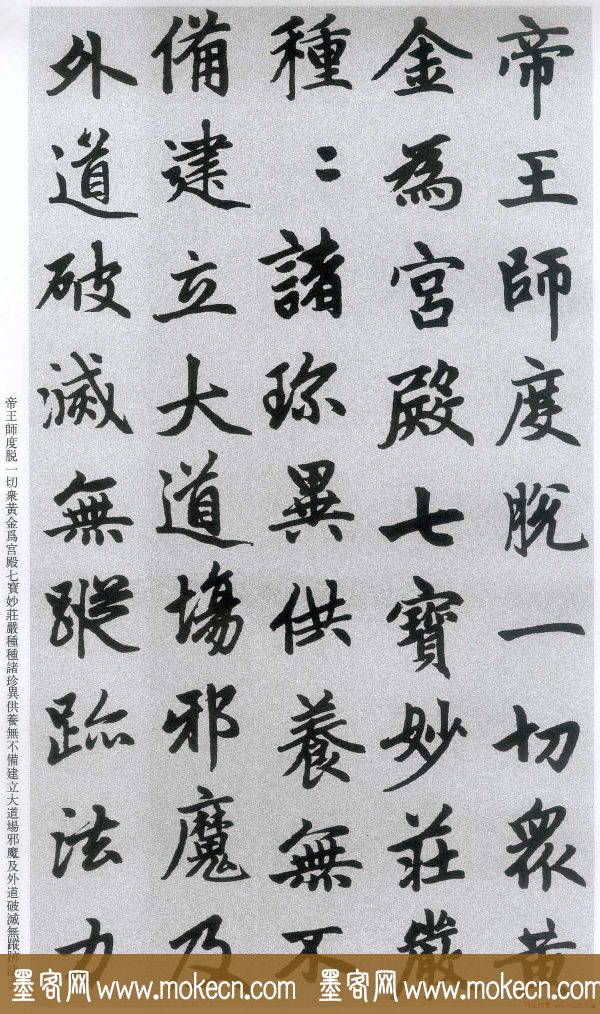 帝王師度脫一切衆黃
金為宮殿七寶妙莊嚴
種〻諸珍異供養無不
備建立大道場邪魔及
外道破滅無蹤跡法力
帝王師度脫一切衆黃金爲宫殿七寶妙莊嚴種種諸珍異供養無不備建立大道場邪魔及外道破滅無蹤跡
墨客网 www.mokecn.com 墨客网 www.mokecn.com